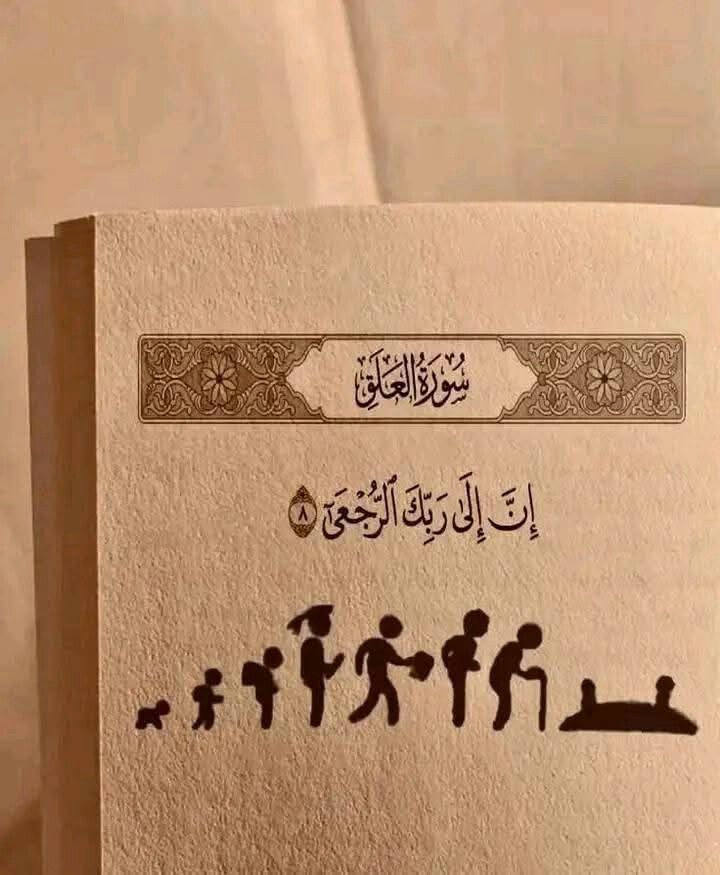 سُورَةُ العَلَقِ
إِنَّ إِلَىٰ رَبِّكَ ٱلرُّجۡعَىٰٓ ٨